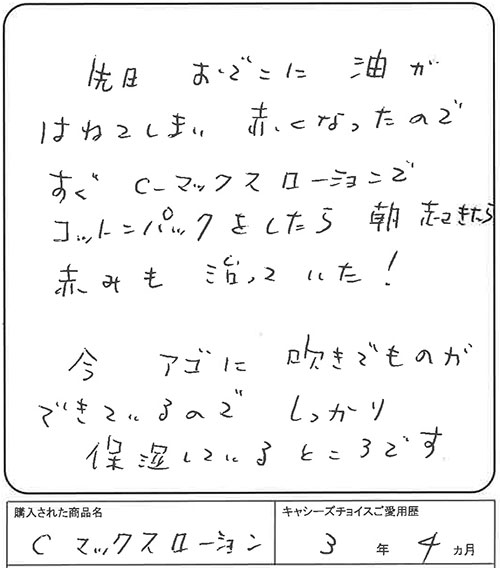 先日 おでこに 油が
はねてしまい 赤くなったので
すぐ C-マックスローションで
コットンパックをしたら 朝起きたら
赤みも 治っていた!
今 アゴに 吹きでものが
できているので しっかり
保湿しているところです
購入された商品名
キャシーズチョイスご愛用歴
Cマックスローション
3年4ヵ月